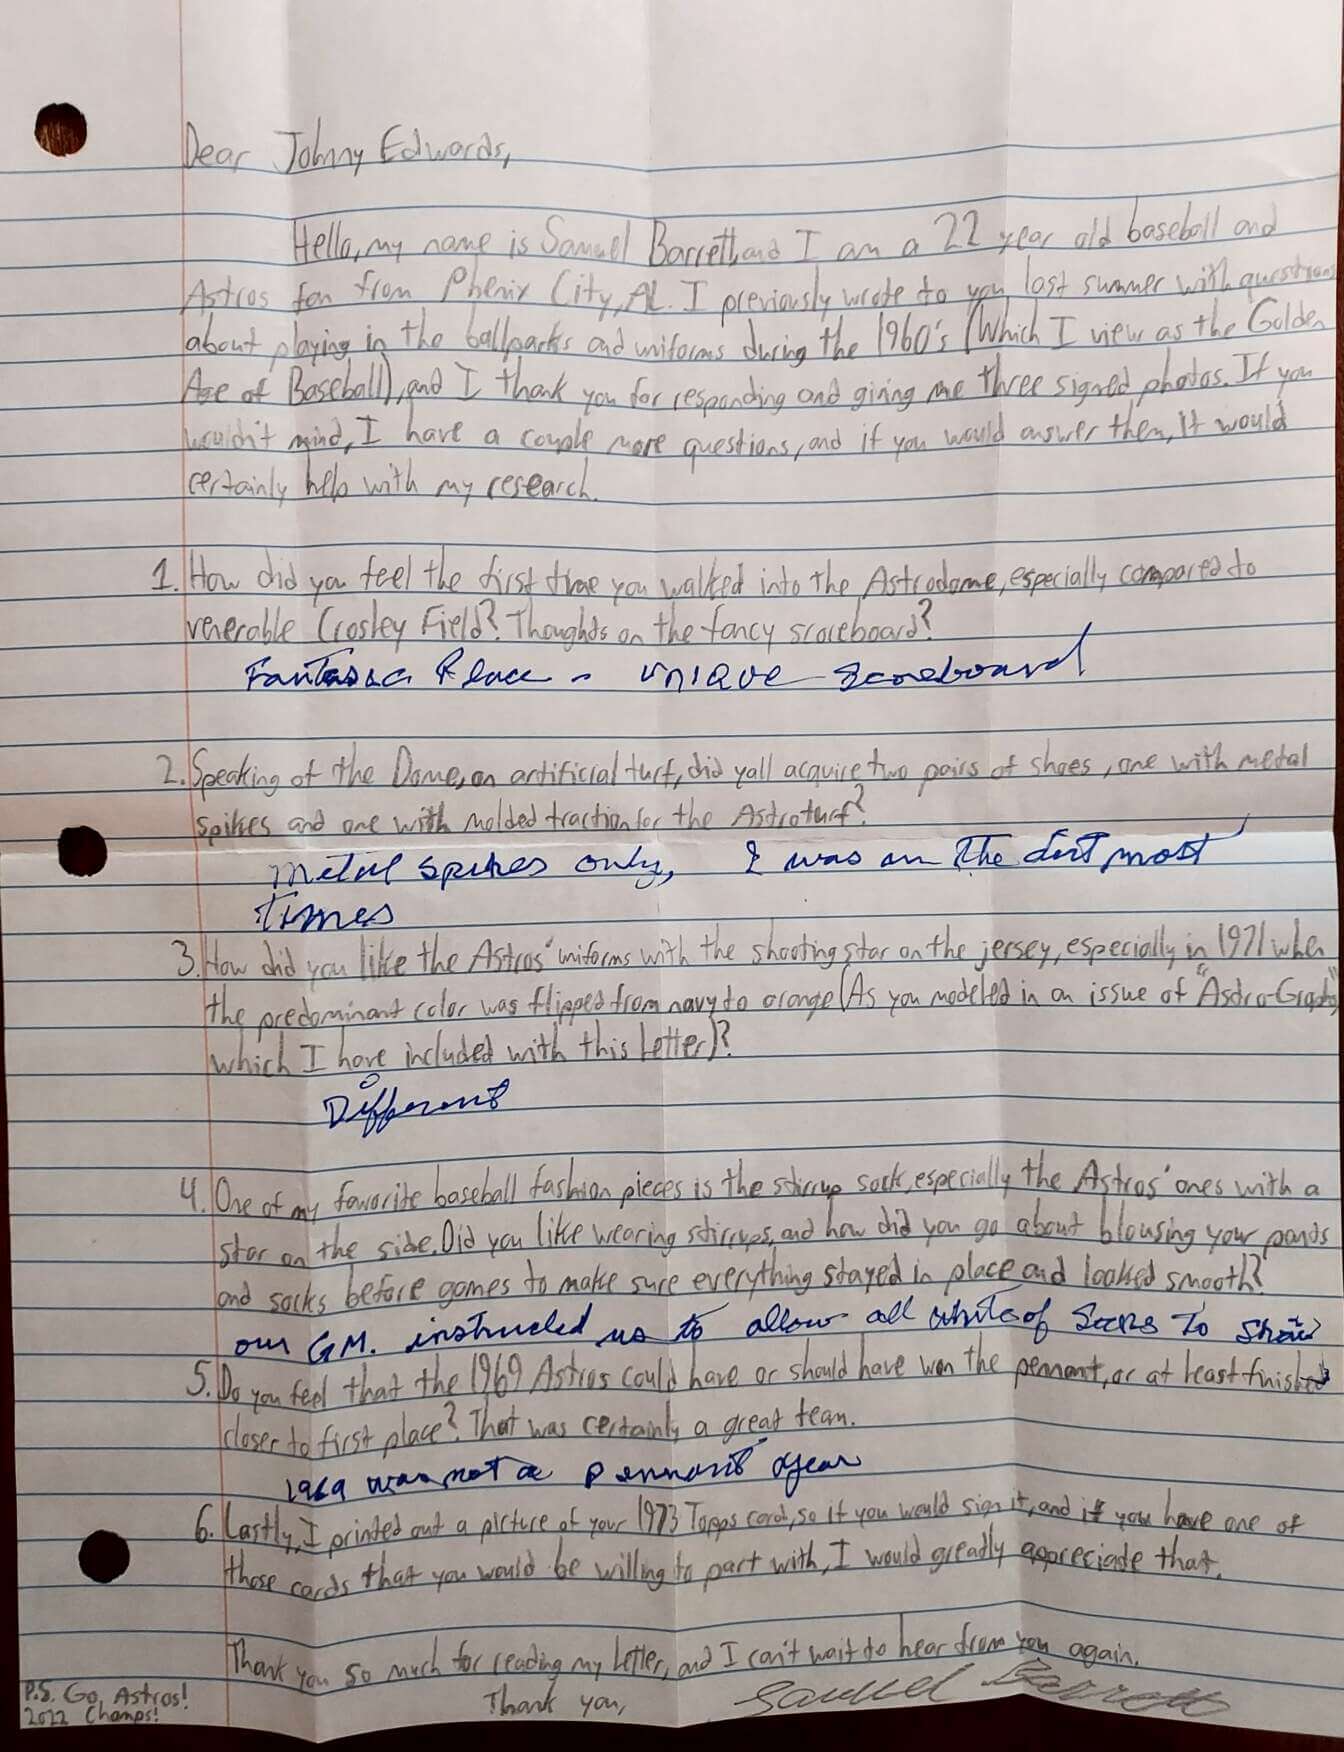 Dear Johnny Edwards,
Hello, my name is Samuel Barrett, and I am a 22 year old baseball and
Astros fan from Phenix City, AL. I previously wrote to you last summer with questions
about playing in the ballparks and uniforms during the 1960's (Which I view as the Golden
Age of Baseball), and I thank you for responding and giving me three signed photos. If you
wouldn't mind, I have a couple more questions, and if you would answer them, it would
certainly help with my research.
1. How did you feel the first time you walked into the Astrodome, especially compared to
venerable Crosley Field? Thoughts on the fancy scoreboard?
Place - unique scoreboard
2. Speaking of the Dome, on artificial turf, did yall acquire two pairs of shoes, one with metal
spikes and one with molded traction for the Astroturf?
Metal spikes only, I was on the dirt most
times
3. How did you like the Astros' uniforms with the shooting star on the jersey, especially in 1971 when
the predominant color was flipped from navy to orange (As you modeled in an issue of "Astro-Graph,"
which I have included with this letter)?
Different
4. One of my favorite baseball fashion pieces is the stirrup sock, especially the Astros' ones with a
star on the side. Did you like wearing stirrups, and how did you go about blousing your pants
and socks before games to make sure everything stayed in place and looked smooth?
our GM. instructed us to allow all white of socks to show
5. Do you feel that the 1969 Astros could have or should have won the pennant, or at least finished
closer to first place? That was certainly a great team.
1969 was not a pennant year
6. Lastly, I printed out a picture of your 1973 Topps card, so if you would sign it, and if you have one of
those cards that you would be willing to part with, I would greatly appreciate that.
Thank you so much for reading my letter, and I can't wait to hear from you again.
Thank you, Samuel Barrett
P.S. Go, Astros!
2022 Champs!